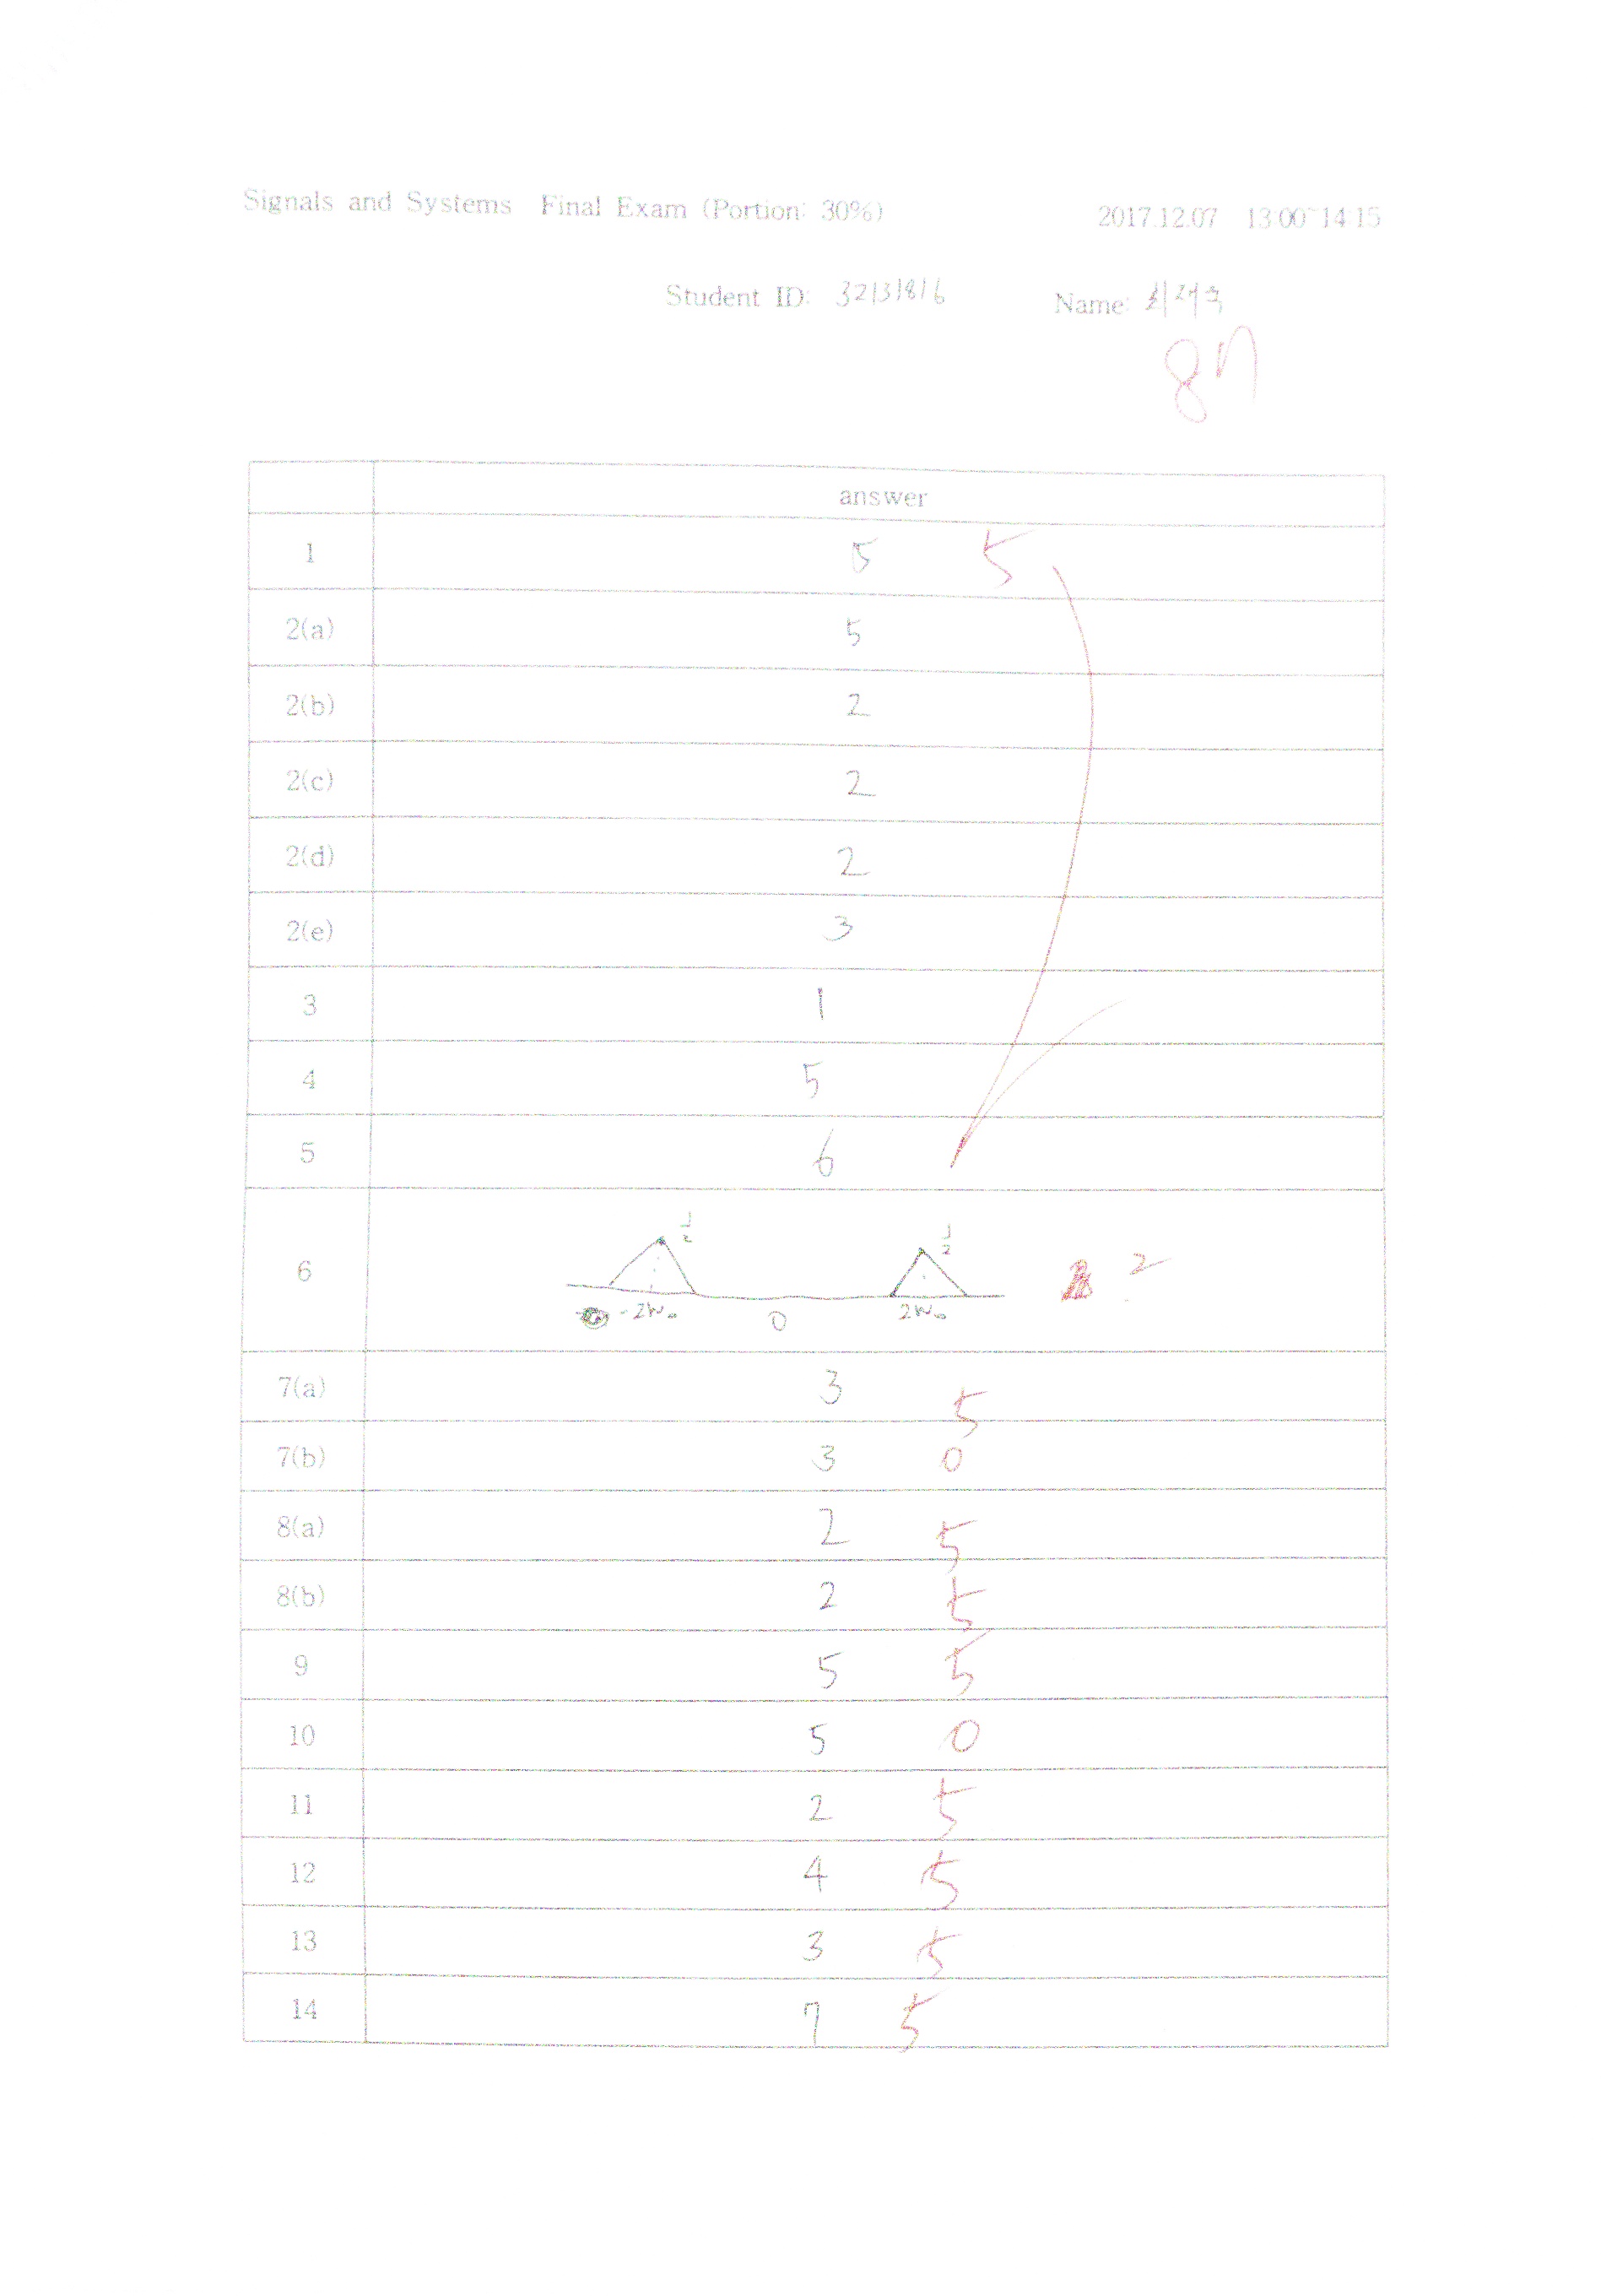 Signals and Systems Final Exam (Portion: 30%) 2017.12.07 13:00~14:15
Student ID: 32131816 Name:
87
answer
1 5 5
2(a) 5
2(b) 2
2(c) 2
2(d) 2
2(e) 3
3 1
4 5
5 6
1/2 1/2
6 2
-2W₀ 0 2W₀
7(a) 3 5
7(b) 3 0
8(a) 2 5
8(b) 2 5
9 5 5
10 5 0
11 2 5
12 4 5
13 3 5
14 7 5